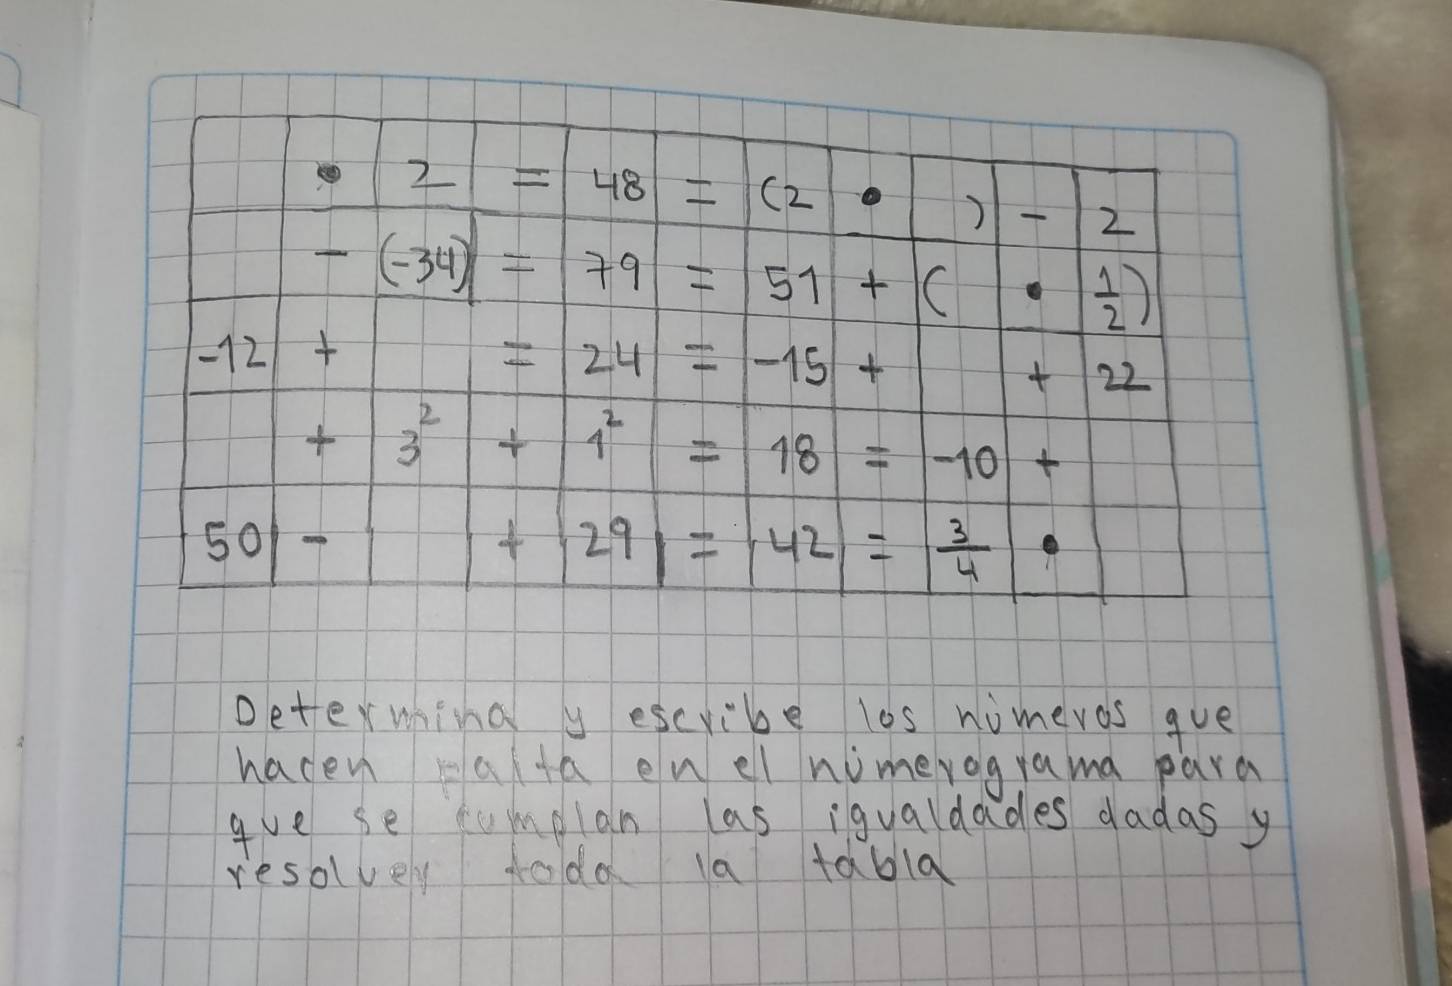 • 2 = 48 = (2 • ) - 2
- (-34) = 79 = 51 + ( • 1/2)
-12 + = 24 = -15 + + 22
+ 3² + 1² = 18 = -10 +
50 - + 29 = 42 = 3/4 •
Determina y escribe los números que
hacen falta en el númerograma para
que se cumplan las igualdades dadas y
resolver toda la tabla